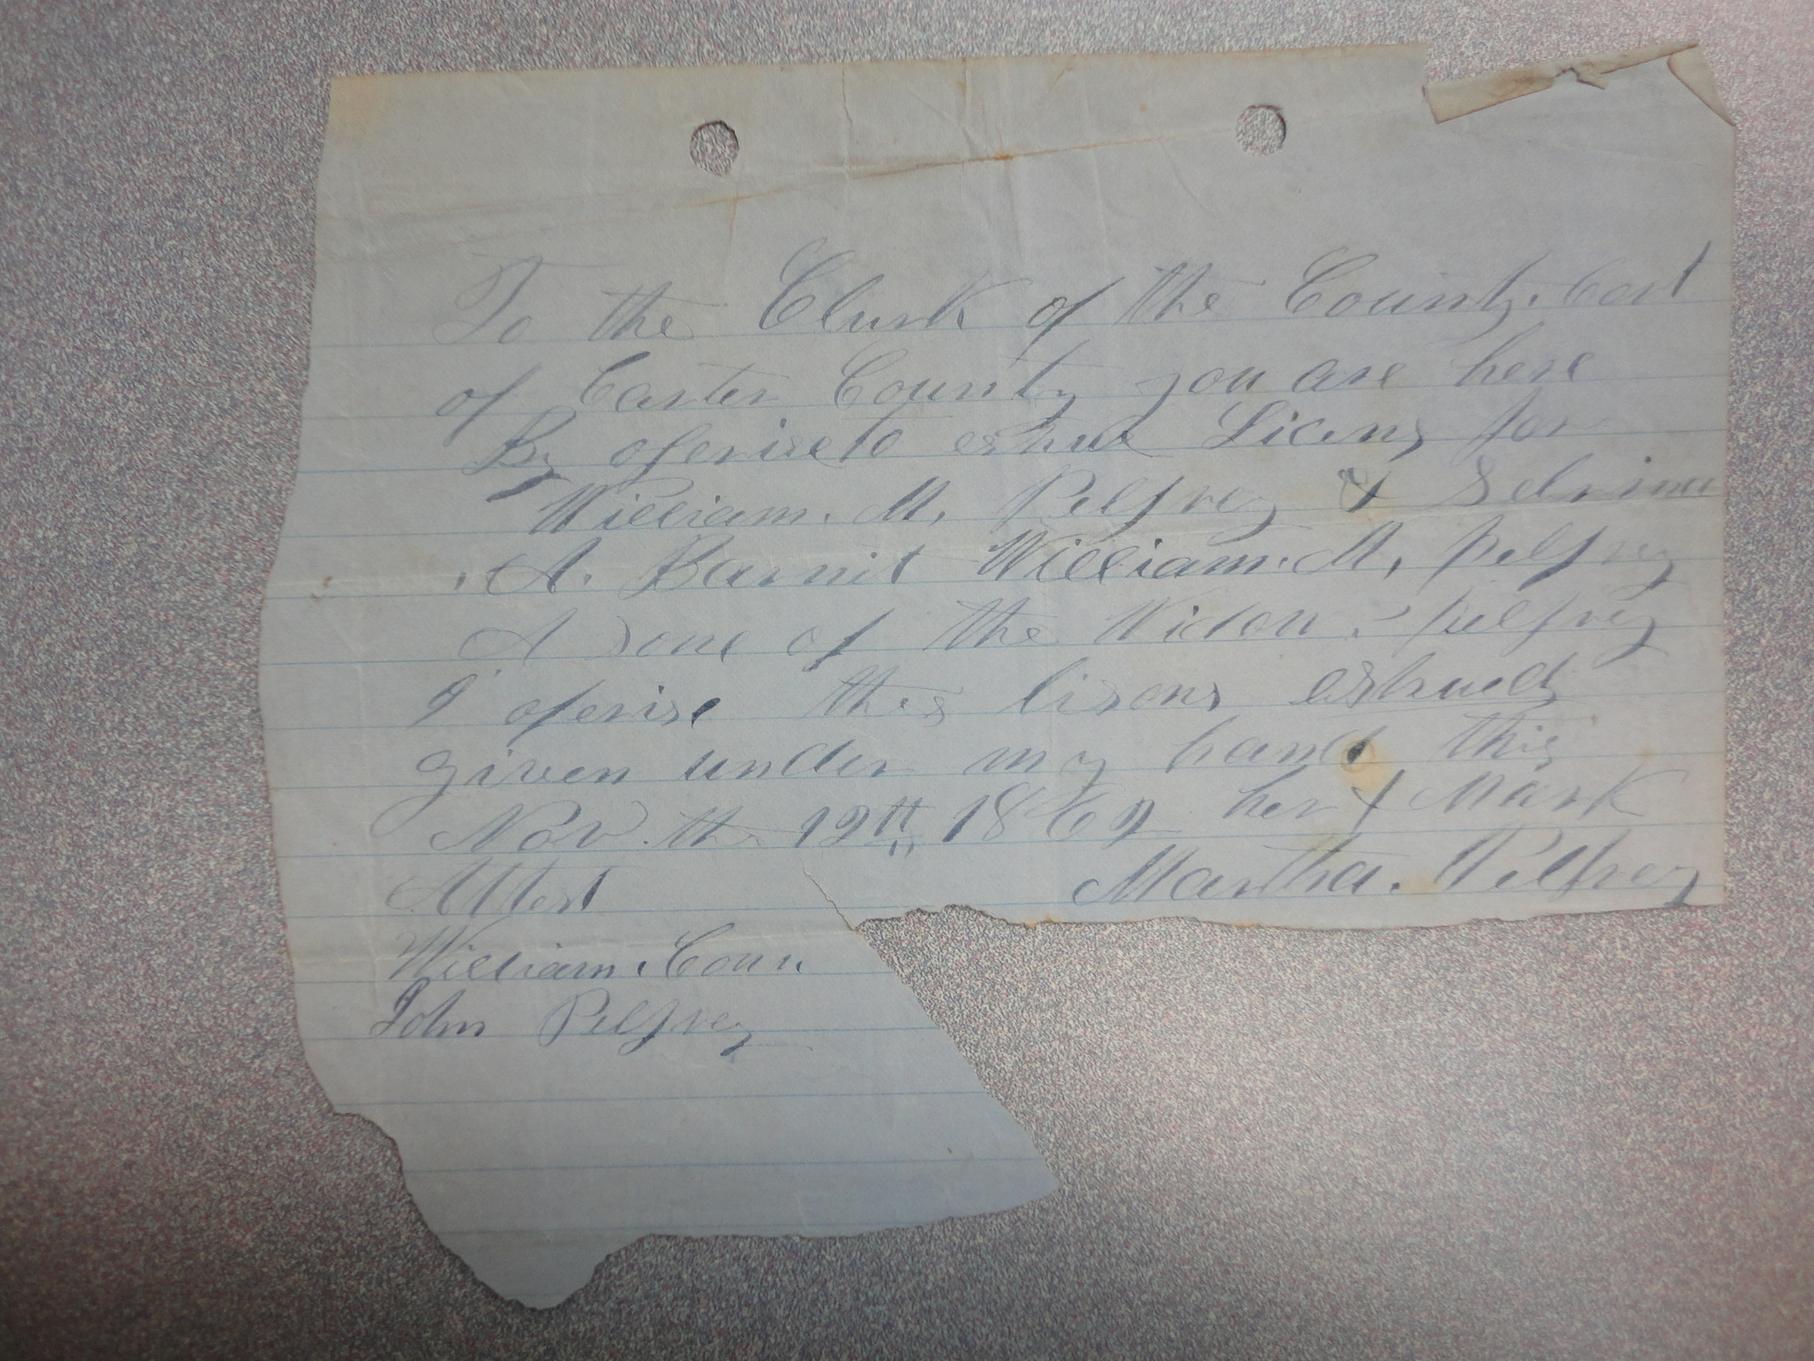 To the Clurk of the County. Cort
of Carter County you are here
By oferise to eshue Licens for
William. M. Pelfrey & Sebrina
A. Barnit William. M, pelfrey
A Sone of the Widow pelfrey
I oferise thes lisons eshued
given under my hand this
Nov the 12th 1869 her X Mark
Attest Martha. Pelfrey
William. Conn
John Pelfrey